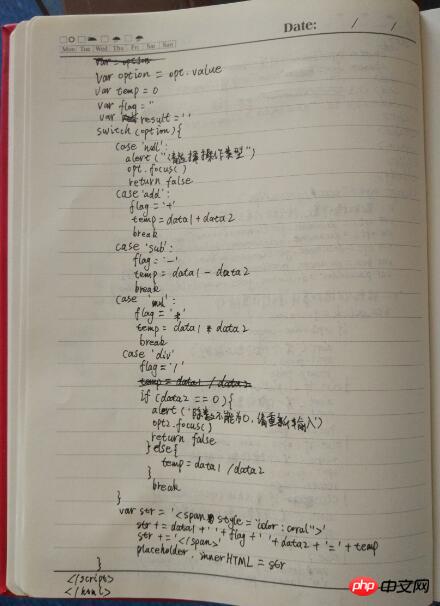 Date: / /
Mon Tue Wed Thu Fri Sat Sun
var option
var option = opt.value
var temp = 0
var flag = ''
var result = ''
switch (option) {
case 'null':
alert("请选择操作类型")
opt.focus()
return false
case 'add':
flag = '+'
temp = data1 + data2
break
case 'sub':
flag = '-'
temp = data1 - data2
break
case 'mul':
flag = '*'
temp = data1 * data2
break
case 'div'
flag = '/'
temp = data1 / data2
if (data2 == 0) {
alert ('除数不能为0,请重新输入')
opt2.focus()
return false
} else {
temp = data1 / data2
}
break
}
var str = '<span style="color:coral">'
str += data1 + ' ' + flag + ' ' + data2 + '=' + temp
str += '</span>'
placeholder.innerHTML = str
}
</script>
</html>
php 中文网